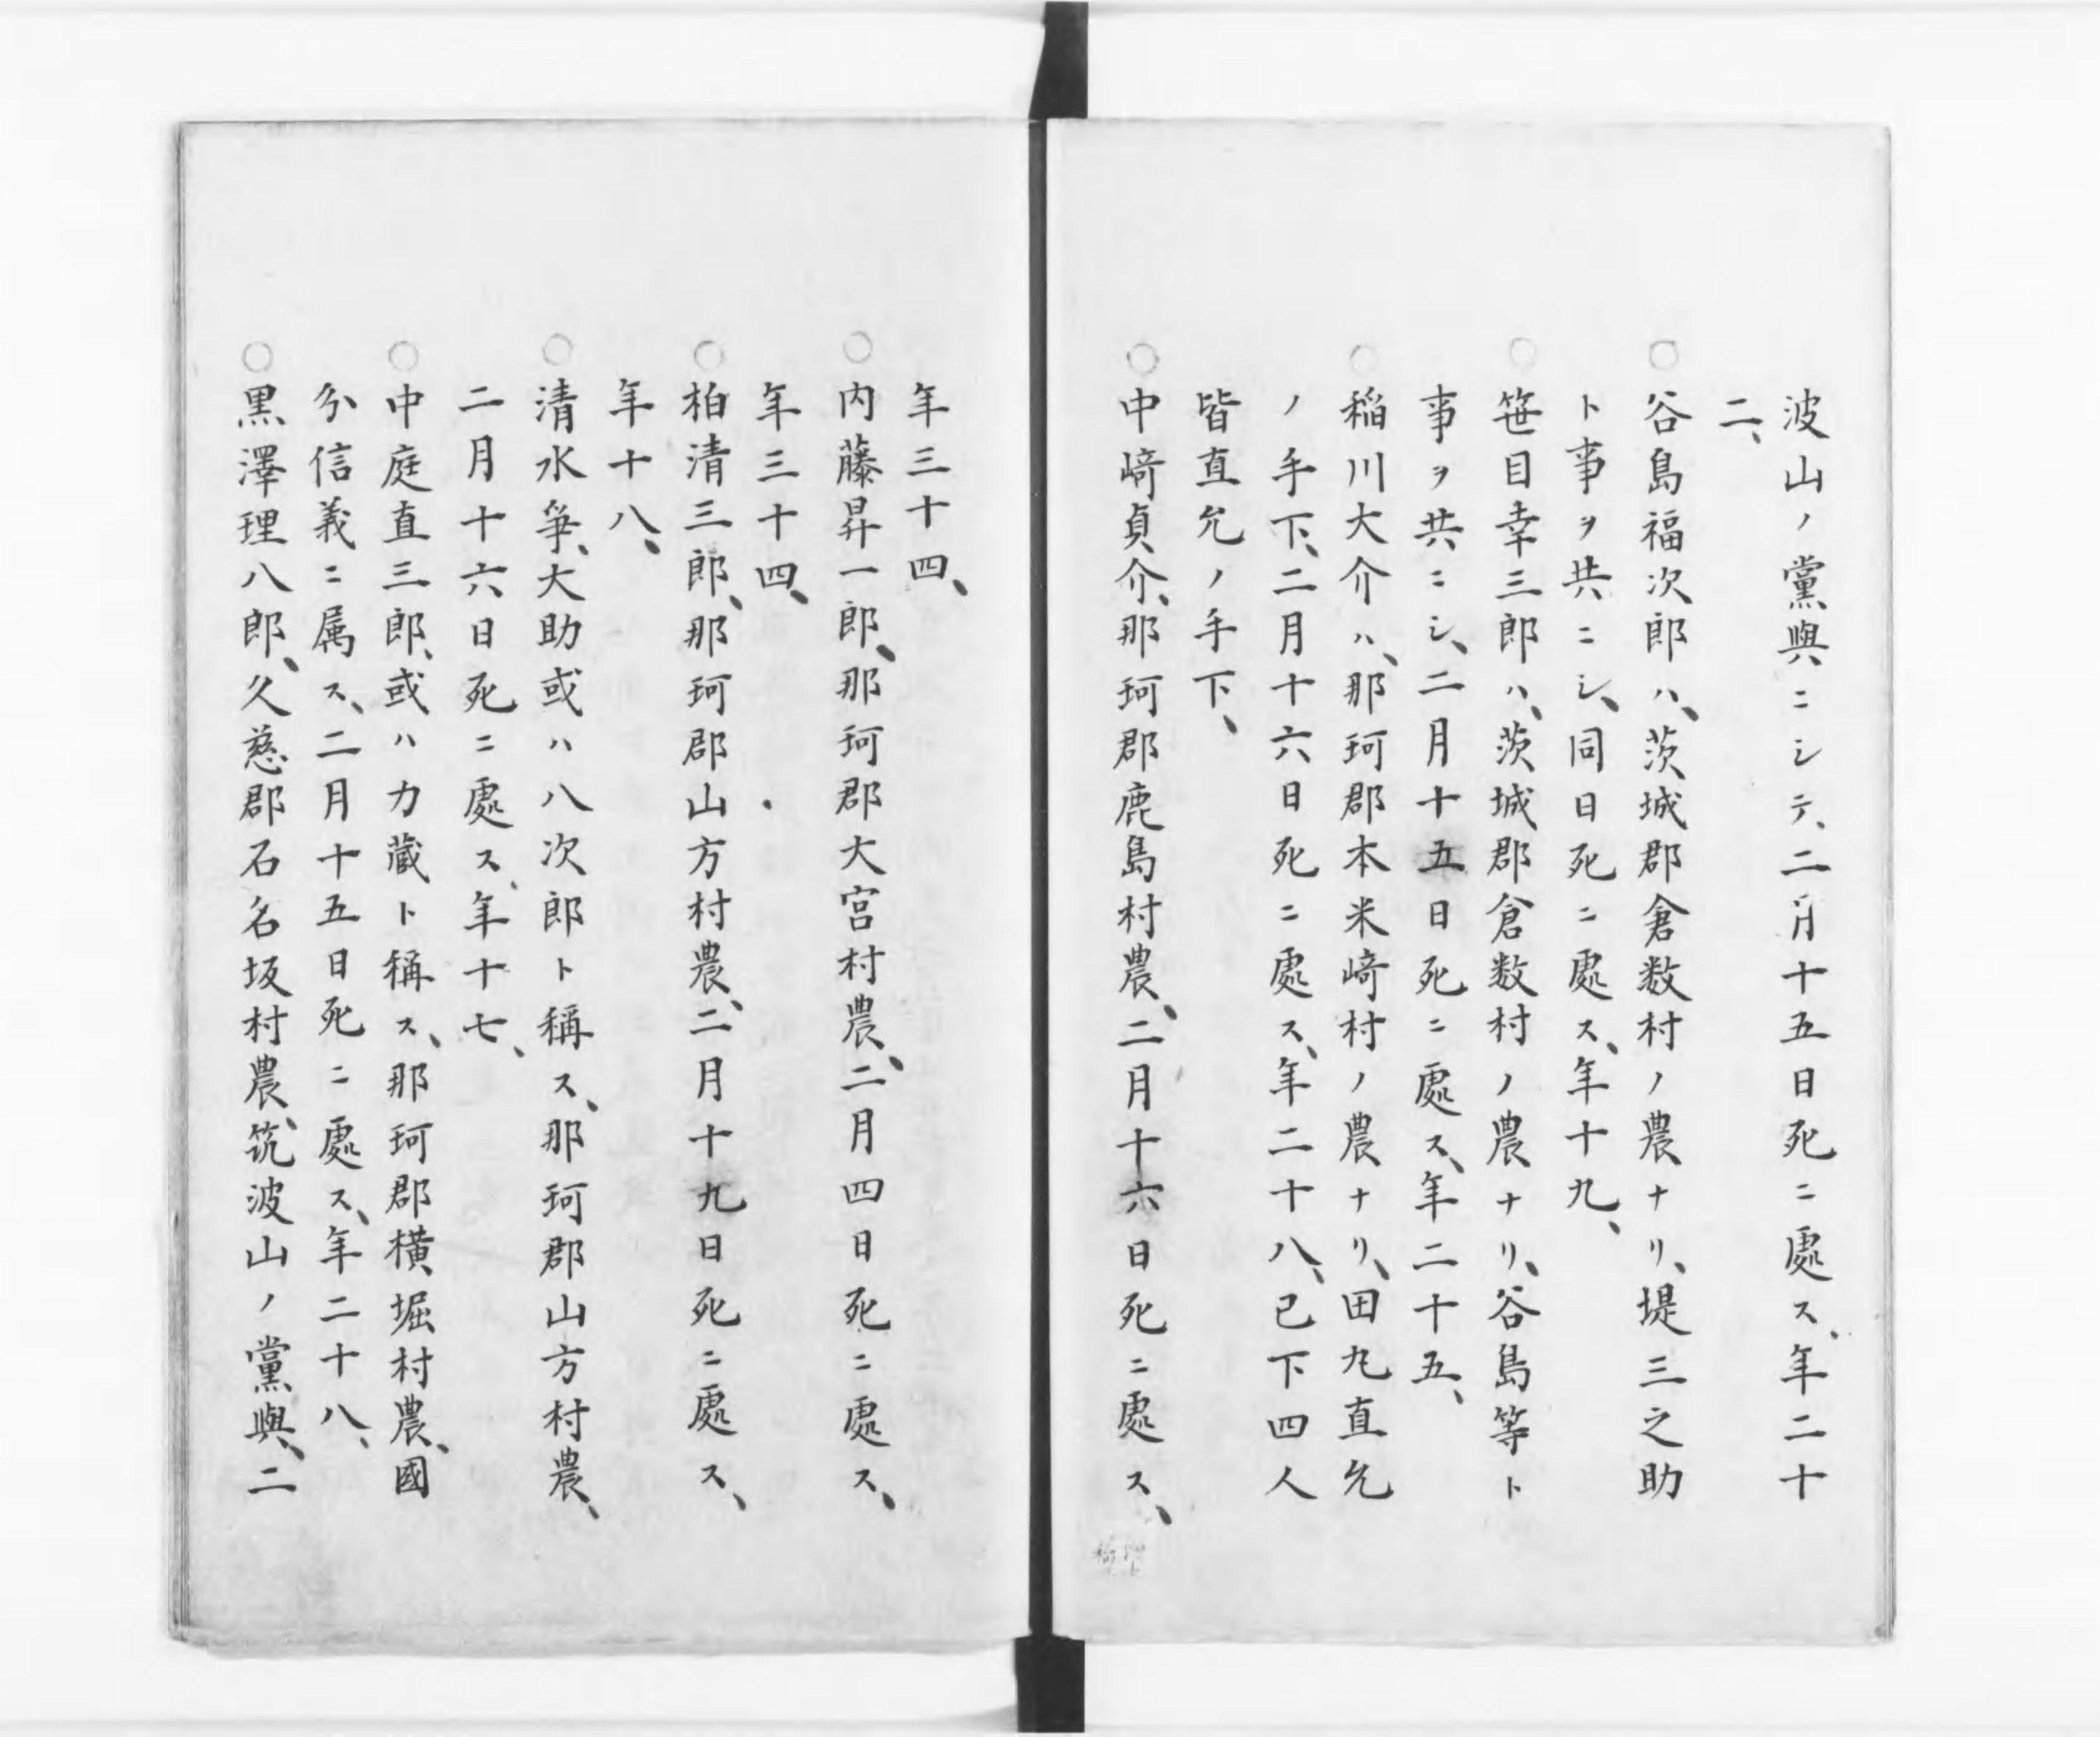 波山ノ黨與ニシテ、二月十五日死ニ處ス、年二十
二、
○谷島福次郎ハ、茨城郡倉数村ノ農ナリ、堤三之助
ト事ヲ共ニシ、同日死ニ處ス、年十九、
○笹目幸三郎ハ、茨城郡倉数村ノ農ナリ、谷島等ト
事ヲ共ニシ、二月十五日死ニ處ス、年二十五、
○稲川大介ハ、那珂郡本米崎村ノ農ナリ、田丸直允
ノ手下、二月十六日死ニ處ス、年二十八、已下四人
皆直允ノ手下、
○中﨑貞介、那珂郡鹿島村農、二月十六日死ニ處ス、
年三十四、
○内藤昇一郎、那珂郡大宮村農、二月四日死ニ處ス、
年三十四、
○柏清三郎、那珂郡山方村農、二月十九日死ニ處ス、
年十八、
○清水争、大助或ハ八次郎ト稱ス、那珂郡山方村農、
二月十六日死ニ處ス、年十七、
○中庭直三郎、或ハ力蔵ト稱ス、那珂郡横堀村農、國
分信義ニ属ス、二月十五日死ニ處ス、年二十八、
○黒澤理八郎、久慈郡石名坂村農、筑波山ノ黨與、二